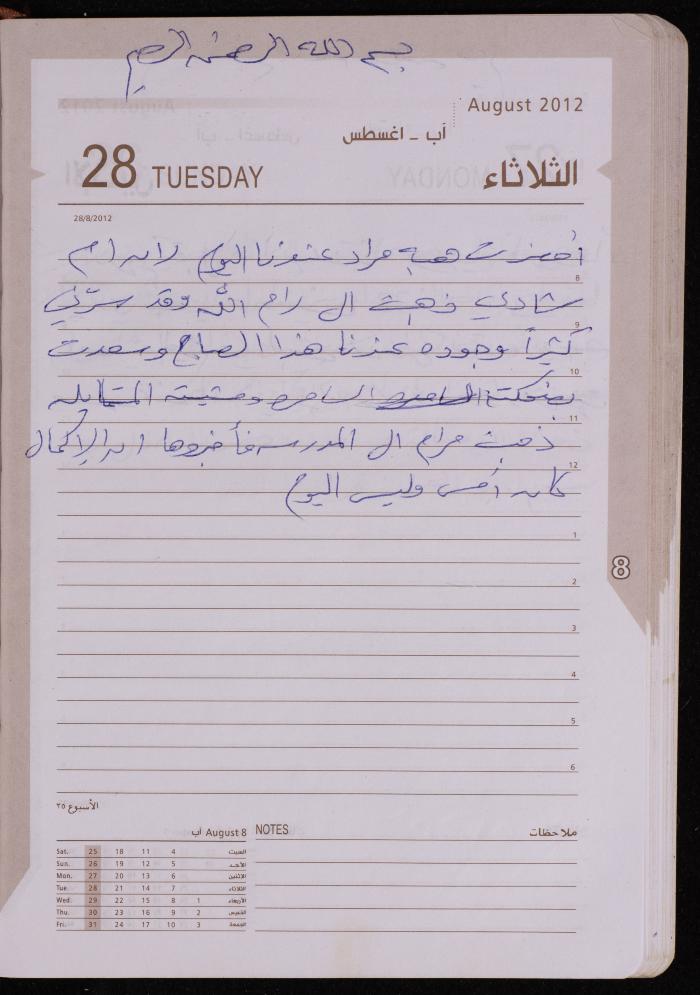 بسم الله الرحمن الرحيم
August 2012
آب - اغسطس
28 TUESDAY
الثلاثاء
28/8/2012
أحضرت هبه مراد عندنا اليوم لان ام
8
شادي ذهبت الى رام الله وقد سرّني
9
كثيراً وجوده عندنا هذا الصباح وسعدت
10
بضحكته الساحره ومشيته المتمايله
11
ذهبت مرام الى المدرسه فأخبروها ان الإكمال
12
كان أمس وليس اليوم
1
2
3
4
5
6
8
الأسبوع ٣٥
August 8 آب
Sat. 25 18 11 4 السبت
Sun. 26 19 12 5 الأحد
Mon. 27 20 13 6 الاثنين
Tue. 28 21 14 7 الثلاثاء
Wed. 29 22 15 8 1 الأربعاء
Thu. 30 23 16 9 2 الخميس
Fri. 31 24 17 10 3 الجمعة
NOTES ملاحظات